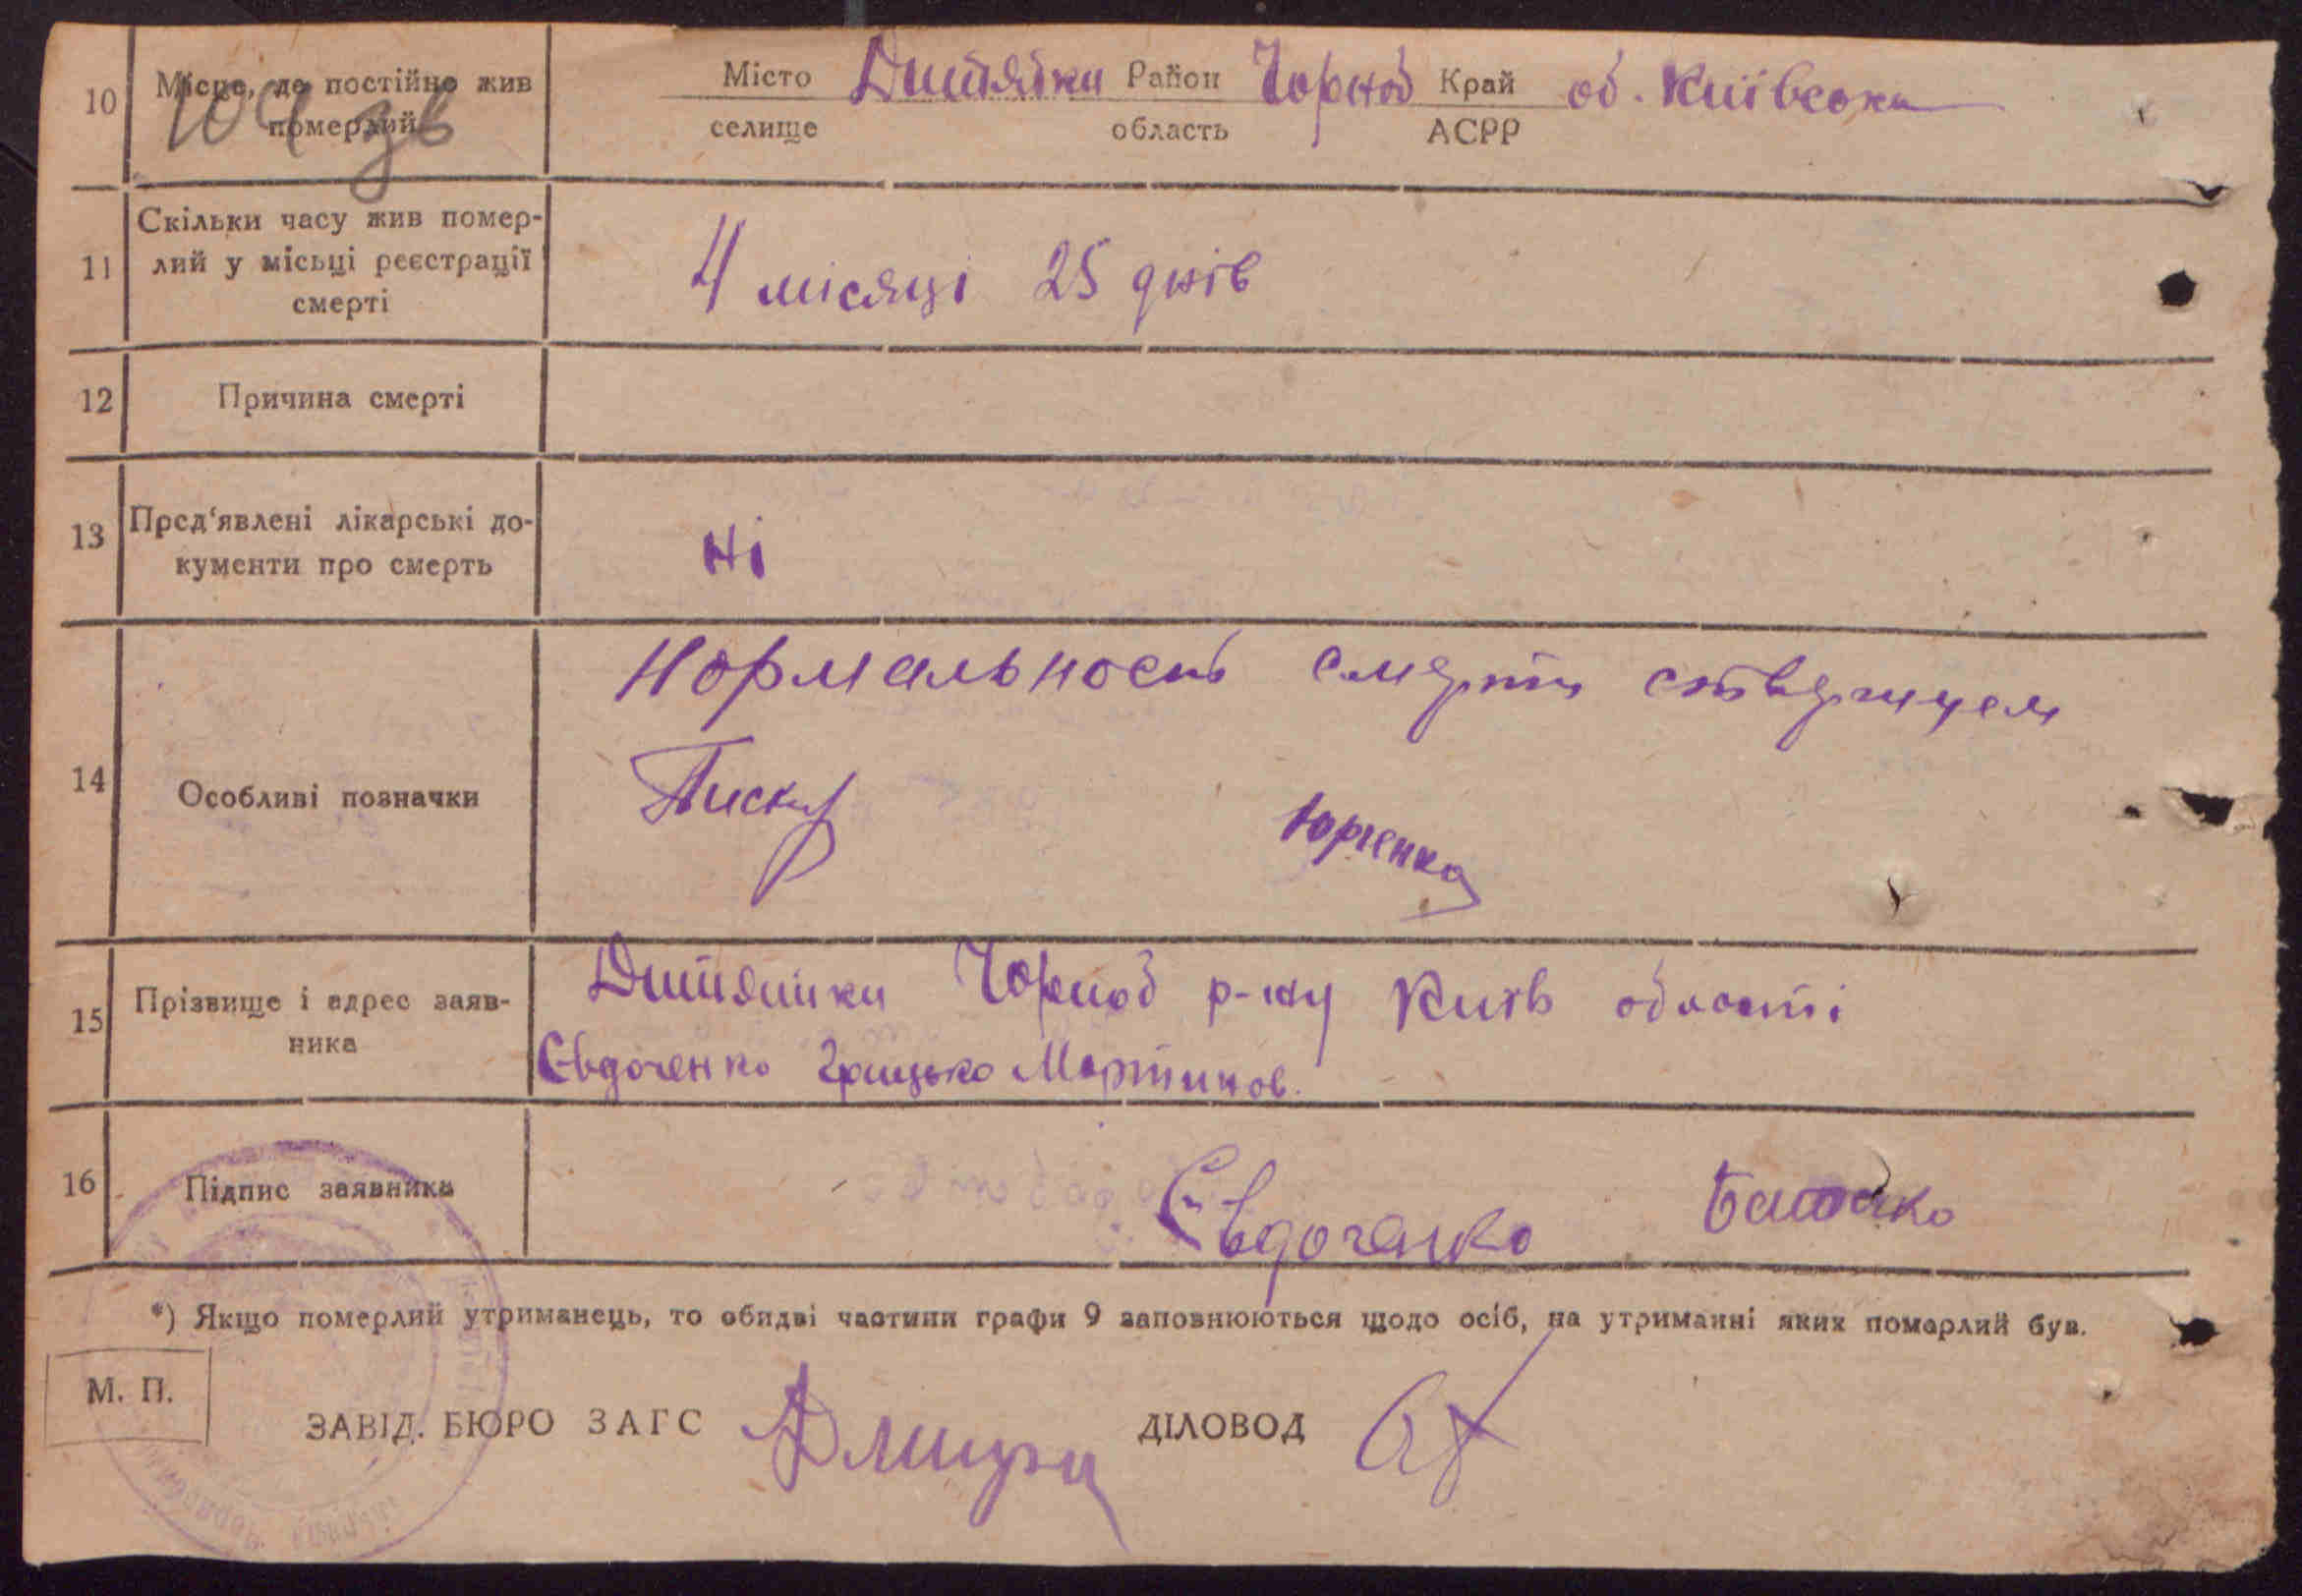 10 Місце, де постійно жив померлий
Місто Дитятки Район Чорноб Край об. Київська
селище область АСРР
104 зв
11 Скільки часу жив помер-
лий у місьці реєстрації
смерті
4 місяці 25 днів
12 Причина смерті
13 Пред'явлені лікарські до-
кументи про смерть
ні
14 Особливі позначки
Нормальность смерти
Пискур Юрченко
15 Прізвище і адрес заяв-
ника
Дитятки Чорноб р-ну Київ області
Євдоченко Грицько Мартинов.
16 Підпис заявника
Євдоченко Батько
*) Якщо померлий утриманець, то обидві частини графи 9 заповнюються щодо осіб, на утриманні яких померлий був.
М. П.
ЗАВІД. БЮРО ЗАГС ДІЛОВОД